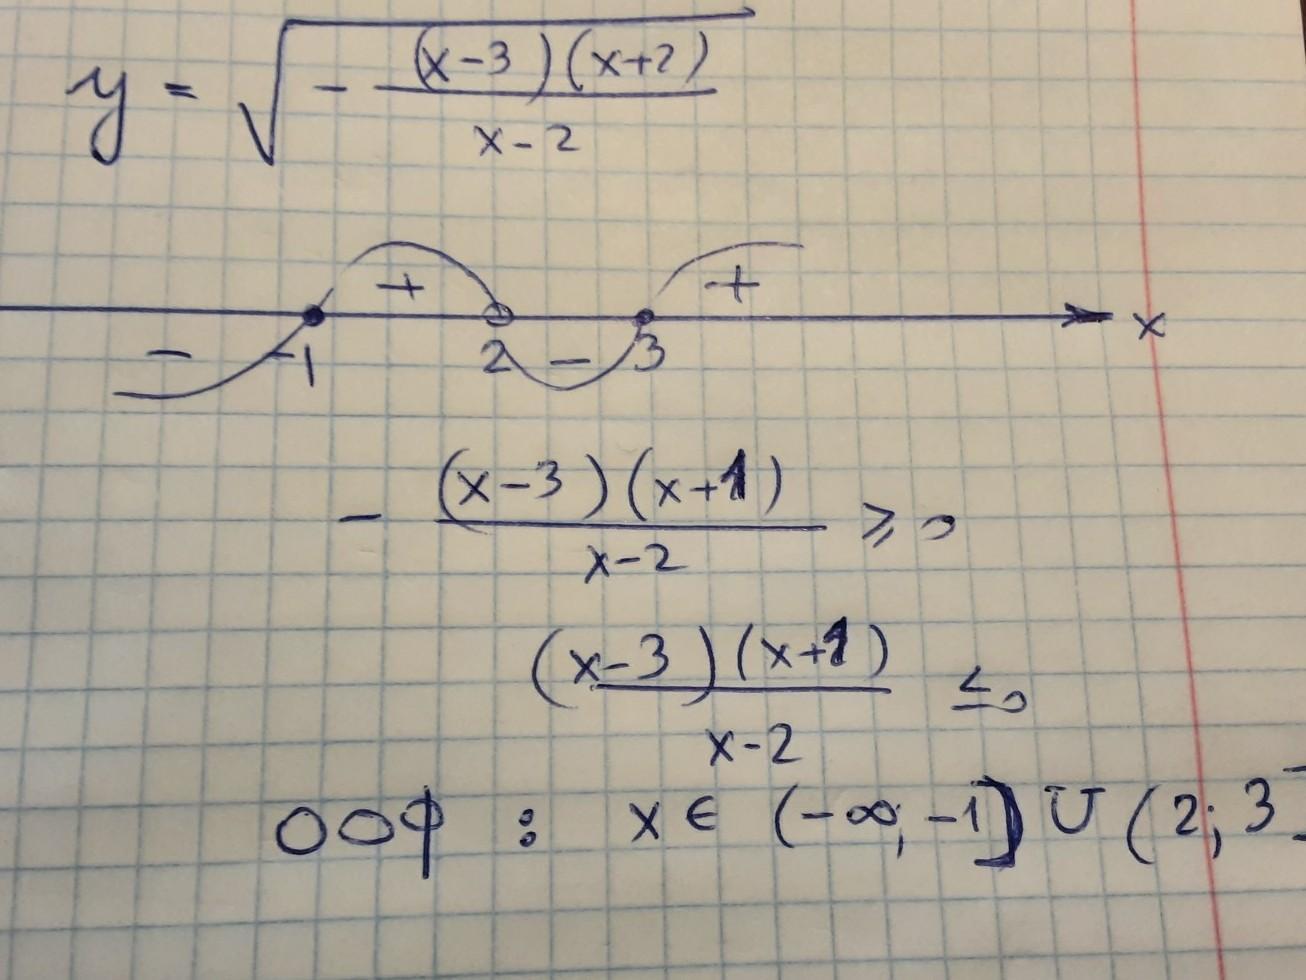 y = √(- (x-3)(x+2) / (x-2))
- + - + x
-1 2 3
- (x-3)(x+1) / (x-2) ⩾ 0
(x-3)(x+1) / (x-2) ≤ 0
ООФ : x ∈ (-∞; -1] ∪ (2; 3]